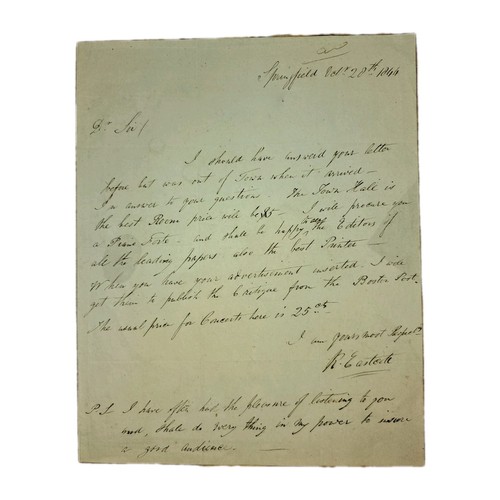 Springfield Octr 28th 1844
Dr Sir/
I should have answerd your letter
before but was out of Town when it arrived-
In answer to your question. The Town Hall is
the best Room price will be $5- I will procure you
a Piano Forte. and shall be happy to see the Editors of
all the leading papers also the best Printer-
When you have your advertisement inserted. I will
get them to publish the Critique from the Boston Post.
The usual price for Concerts here is 25cts
I am yours most Respect
R. Eastcott
P.S. I have often had, the pleasure of listening to you
and, shall do every thing in my power to insure
a good audience.-